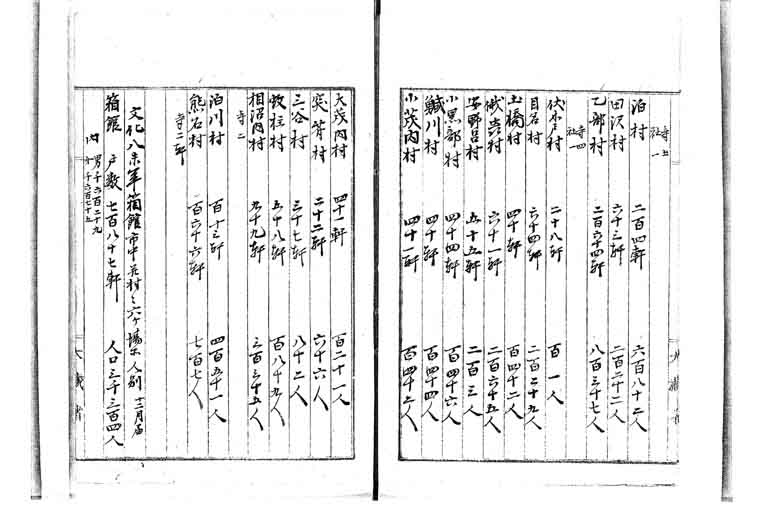 泊村 二百四軒 六百八十二人
寺三
社一
田沢村 六十三軒 二百二十二人
乙部村 二百六十四軒 八百三十七人
寺四
社
伏木戸村 二十八軒 百一人
目名村 六十四軒 二百二十九人
土橋村 四十軒 百四十二人
俄虫村 六十一軒 二百六十五人
安野呂村 五十五軒 二百三人
小黒部村 四十四軒 百四十六人
鰔川村 四十軒 百四十四人
小茂内村 四十一軒 百四十二人
大茂内村 四十軒 百二十一人
突符村 二十二軒 六十六人
三谷村 三十七軒 八十二人
蚊柱村 五十八軒 百八十九人
相沼内村 九十九軒 三百三十五人
寺二
泊川村 百十三軒 四百五十一人
熊石村 百六十六軒 七百七人
寺二軒
文化八未年箱館市中並村々六ヶ場所人別 十二月届
箱館 戸数 七百八十七軒 人口三千三百四人
内 男千六百二十九
女千六百七十五
大蔵省